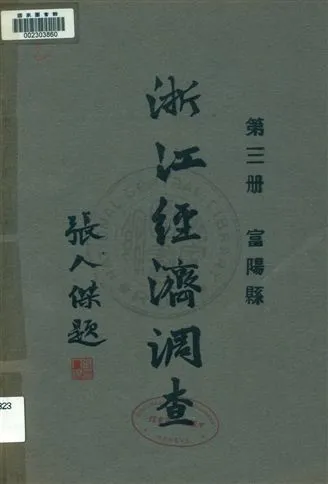 第三册 富陽縣
浙江經濟調查
張人傑題
002303860
NATIONAL CENTRAL LIBRARY